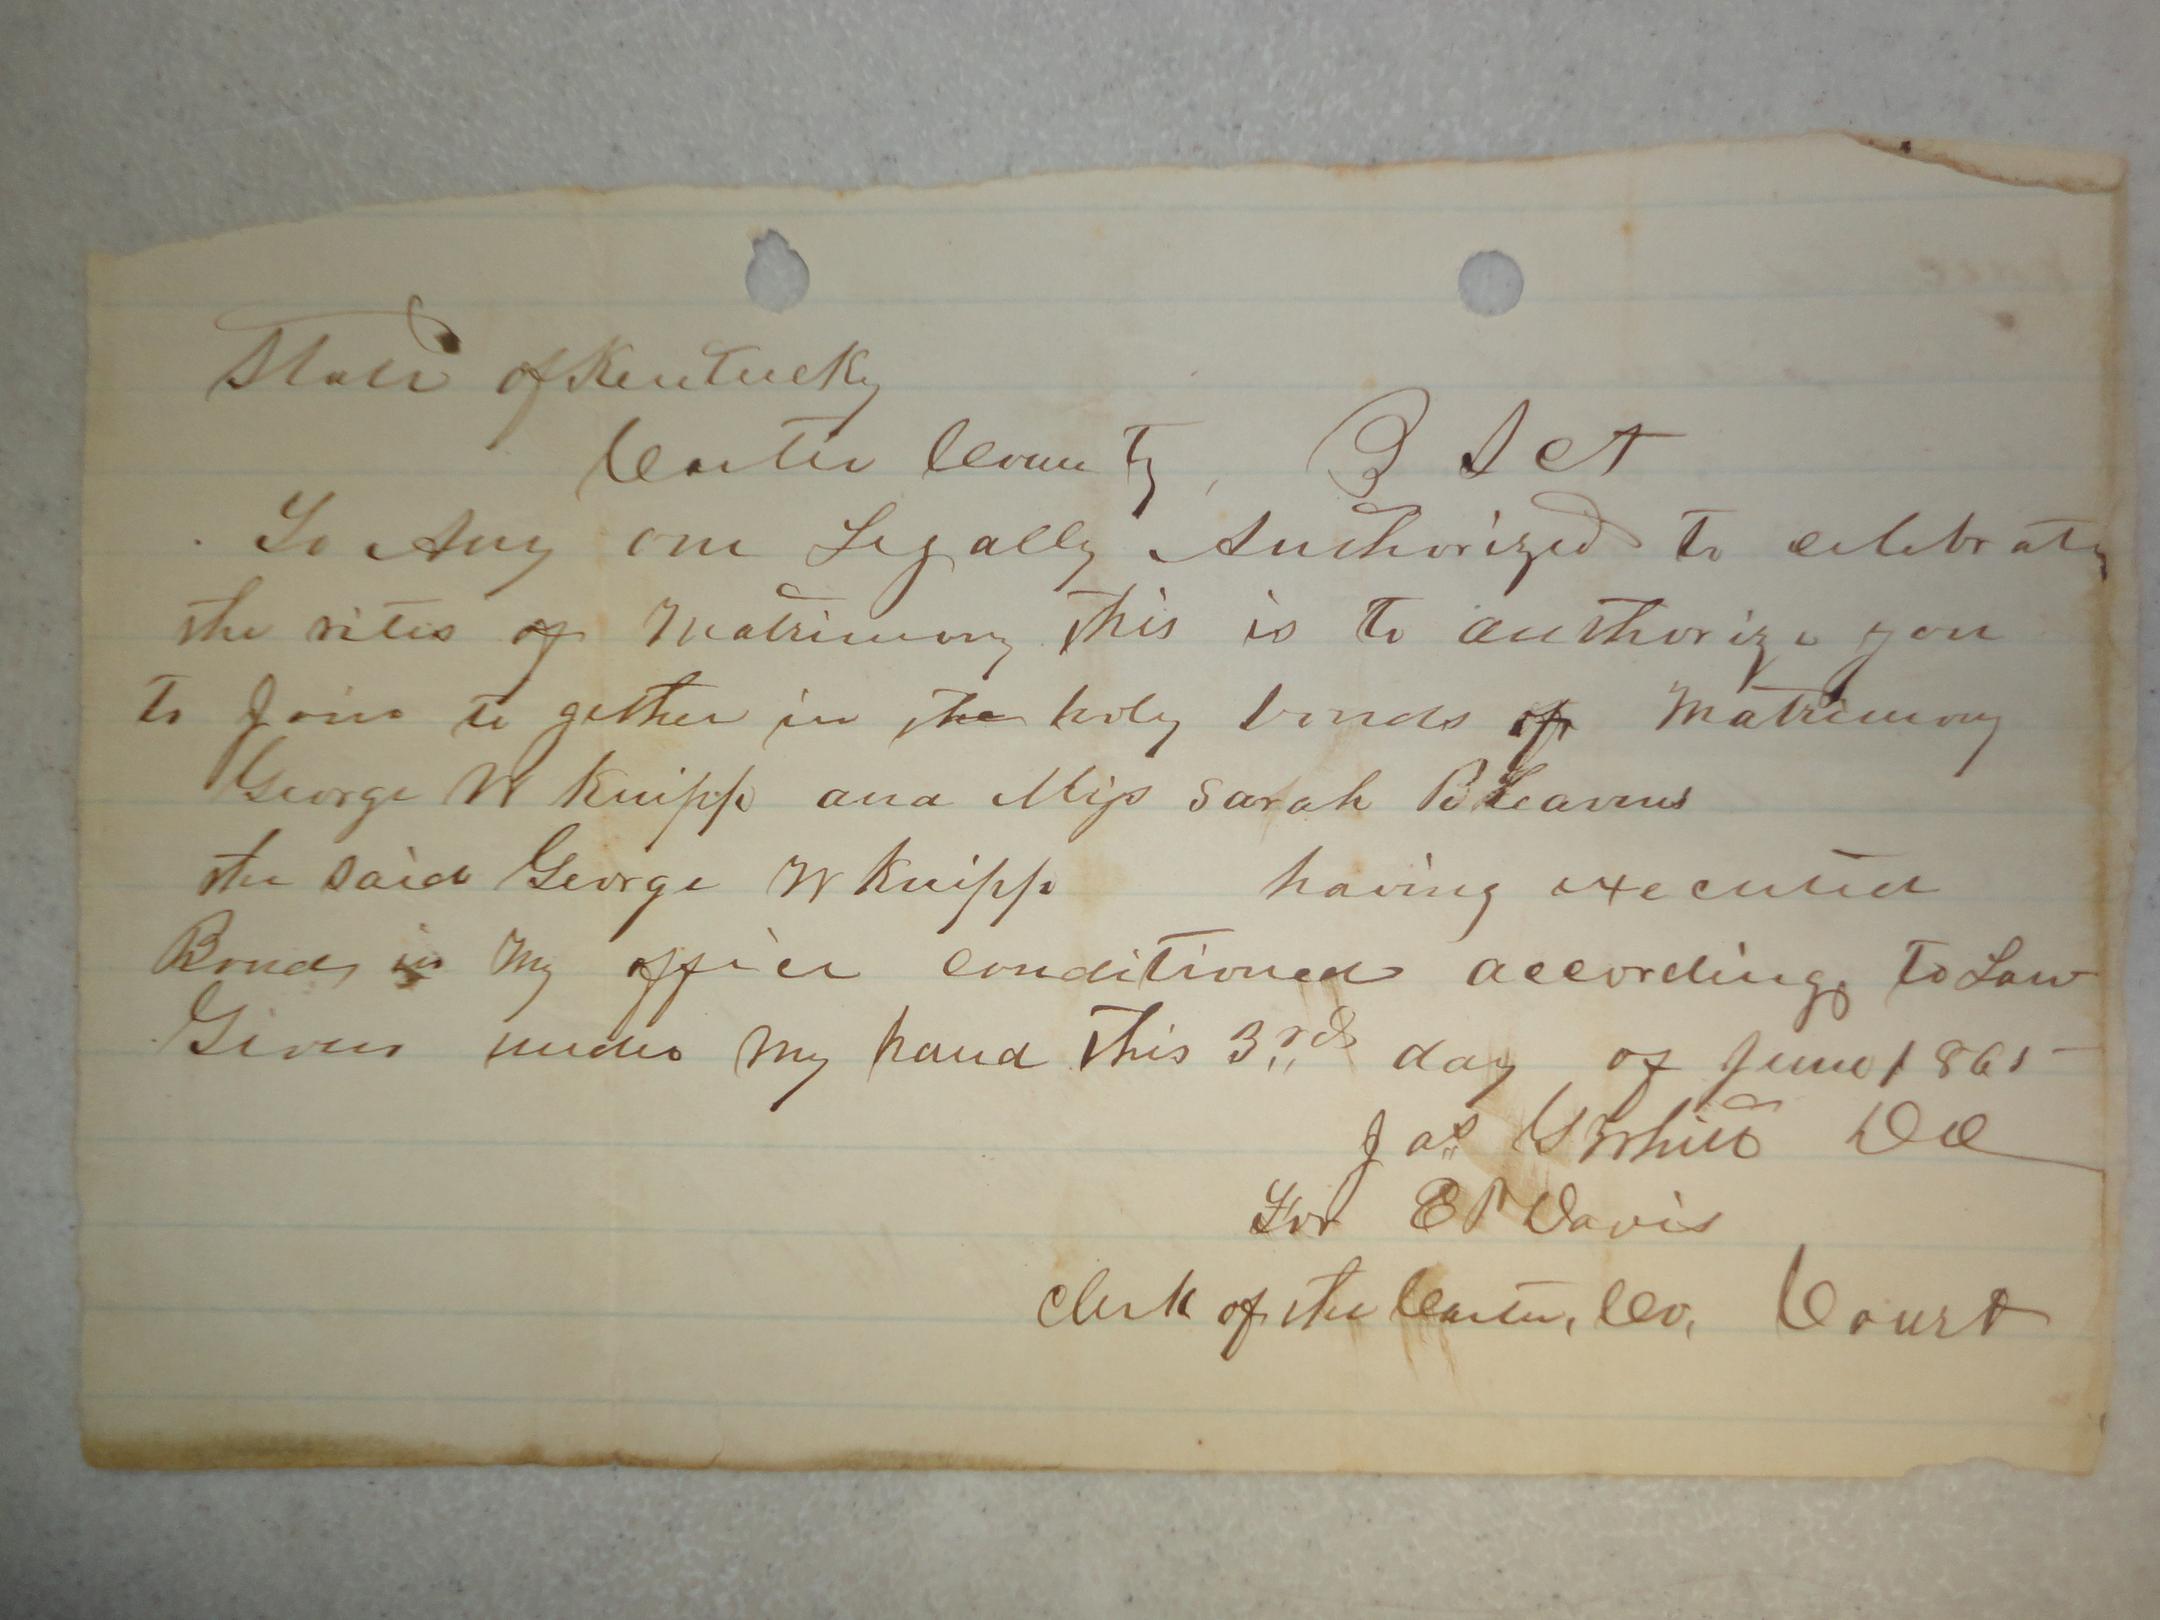 State of Kentucky
Carter County, Sct
To Any one Legally Authorized to celebrate
the rites of Matrimony This is to authorize you
to Join to gether in the holy bonds of Matrimony
George W Knipp and Miss Sarah
the said George W Knipp having executed
Bond in My office conditioned according to Law
Given under My hand This 3rd day of June 1865
Jas Whitt DC
For E P Davis
Clerk of the Carter, Co, Court